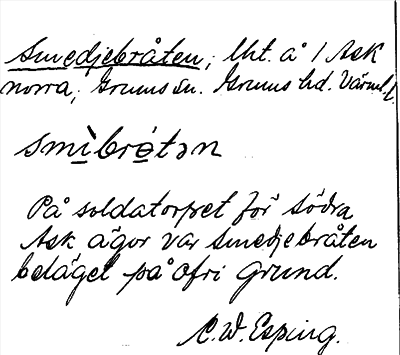 Smedjebråten, lht. å 1 Ask
norra, Grums sn. Grums hd. Värml.
smìbrǫ́tən
På soldatorpet för södra
Ask ägor var Smedjebråten
beläget på Ofri grund.
C. W. Esping.